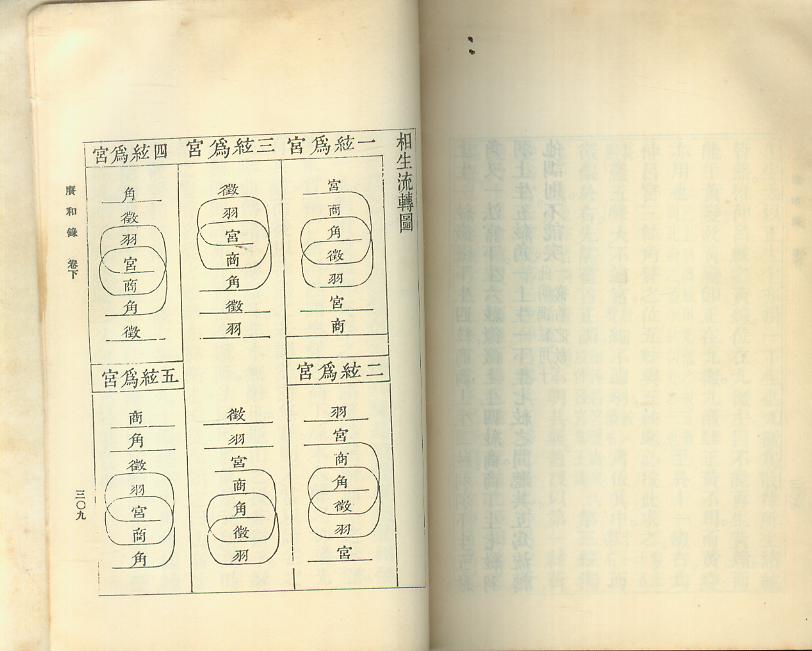 相生流轉圖
一絃爲宮
宮
商
角
徵
羽
宮
商
二絃爲宮
羽
宮
商
角
徵
羽
宮
三絃爲宮
徵
羽
宮
商
角
徵
羽
徵
羽
宮
商
角
徵
羽
四絃爲宮
角
徵
羽
宮
商
角
徵
五絃爲宮
商
角
徵
羽
宮
商
角
賡和錄 卷下
三〇九